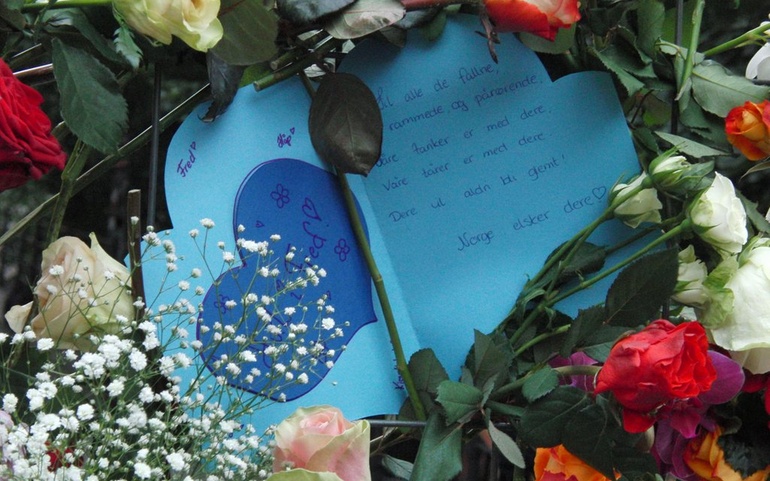 Fred
Hip
Til alle de falne,
rammede, og pårørende.
Våre tanker er med dere,
Våre tårer er med dere.
Dere vil aldri bli glemt!
Norge elsker dere♡
Fred